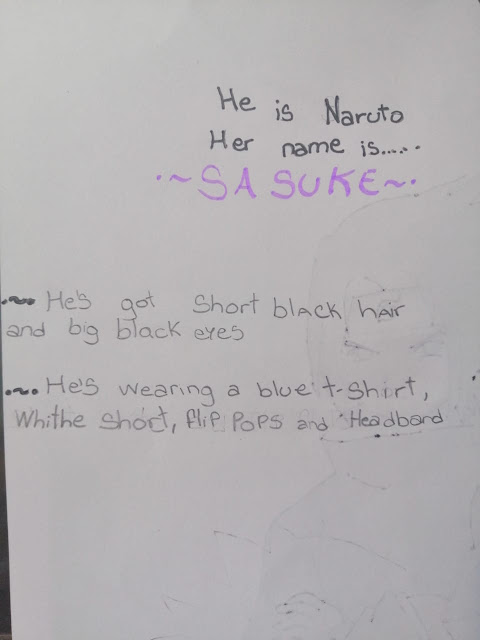 He is Naruto
Her name is......
·~SASUKE~·
·~· He's got short black hair
and big black eyes
·~· He's wearing a blue t-shirt,
Whithe short, flip pops and Headband